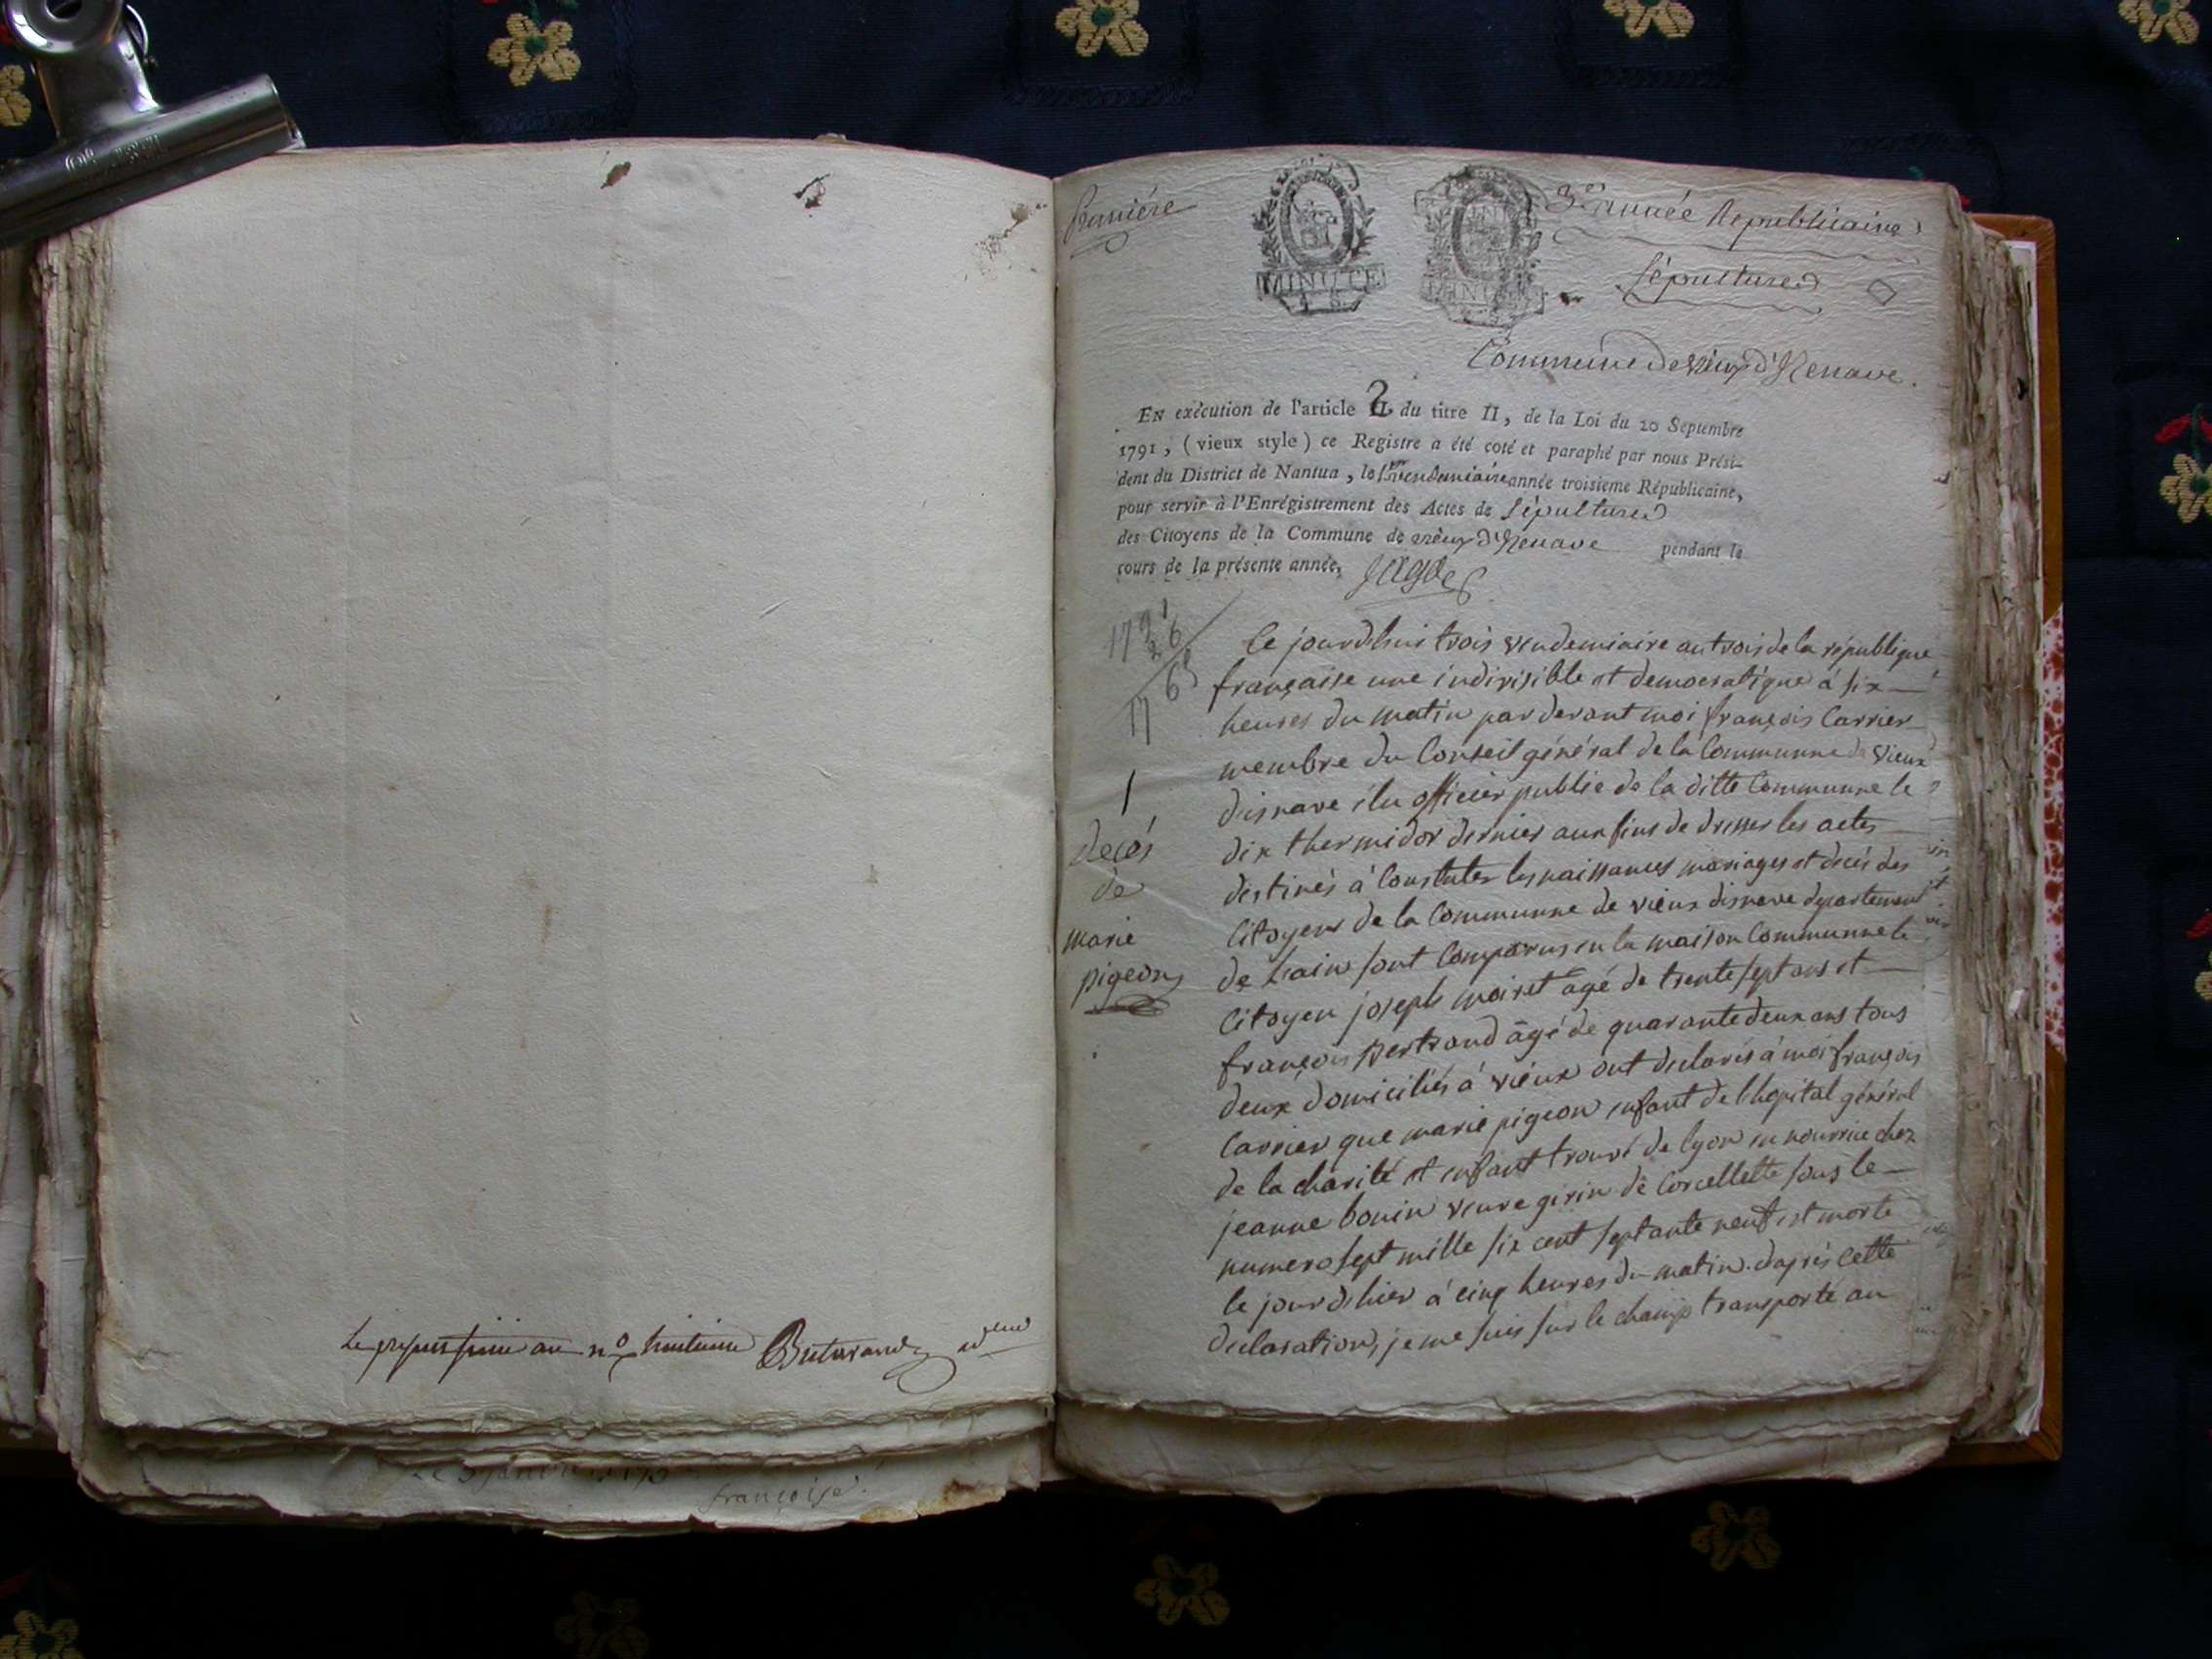 Premiére
MINUTE
MINUTE
3.e année Républicaine
Sépultures
Commune de vieux d'Izenave.
EN exécution de l'article 2 du titre II, de la Loi du 20 Septembre
1791, (vieux style) ce Registre a été coté et paraphé par nous Prési-
dent du District de Nantua, le 1er vendemiaire année troisieme Républicaine,
pour servir à l'Enrégistrement des Actes de Sépultures
des Citoyens de la Commune de vieux d'Izenave pendant le
cours de la présente année,
1791
26
1765
1
decés
de
marie
pigeon
Ce jourd'huis trois vendemiaire an trois de la république
française une indivisible et democratique à six
heures du matin par devant moi françois Carrier
membre du Conseil général de la Communne de Vieux
disnave élu officier public de la ditte Communne le
dix thermidor dernier aux fins de dresser les actes
destinés à Constater les naissances mariages et decés des
Citoyens de la Communne de vieux disnave departement
de Lain sont Comparus en la maison Communne le
Citoyen joseph moiret agé de trente sept ans et
françois Bertrand âgé de quarante deux ans tous
deux domiciliés à vieux ont declarés à moi françois
Carrier que marie pigeon enfant de l'hopital général
de la charité et enfant trouvé de lyon en nourrice chez
jeanne bonin veuve girin de Corcellette sous le
numero sept mille six cent septante neuf est morte
le jour d'hier à cinq heures du matin. d'aprés cette
declaration, je me suis sur le champ transporté au
Le présent finie au n.o huitieme
françoise